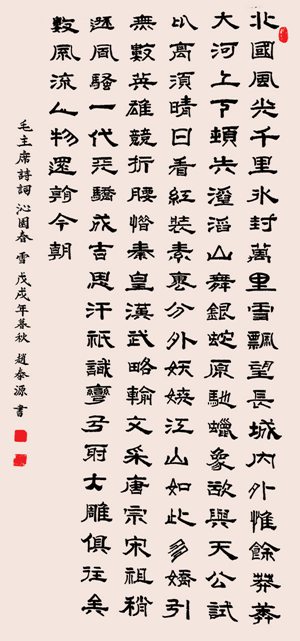 北國風光千里冰封萬里雪飄望長城内外惟餘莽莽
大河上下頓失滔滔山舞銀蛇原馳蠟象欲與天公試
比高須晴日看紅裝素裹分外妖嬈江山如此多嬌引
無數英雄競折腰惜秦皇漢武略輸文采唐宗宋祖稍
遜風騷一代天驕成吉思汗祇識彎弓射大雕俱往矣
數風流人物還看今朝
毛主席詩詞 沁園春 雪 戊戌年暮秋 趙泰源書